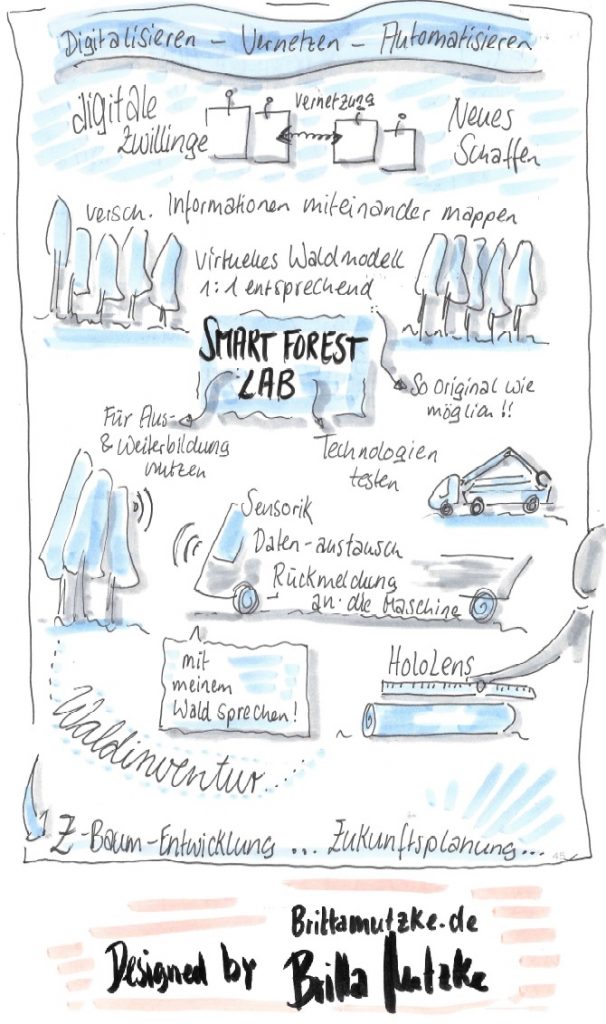 Digitalisieren – Vernetzen – Automatisieren
digitale
Zwillinge
Vernetzung
Neues
Schaffen
versch. Informationen miteinander mappen
virtuelles Waldmodell
1:1 entsprechend
SMART FOREST
LAB
So original wie
möglich!!
Für Aus-
& Weiterbildung
nutzen
Technologien
testen
Sensorik
Daten-austausch
Rückmeldung
an die Maschine
mit
meinem
Wald sprechen!
HoloLens
Waldinventur...
Z-Baum-Entwicklung ... Zukunftsplanung...
45
Brittamutzke.de
Designed by Britta Mutzke